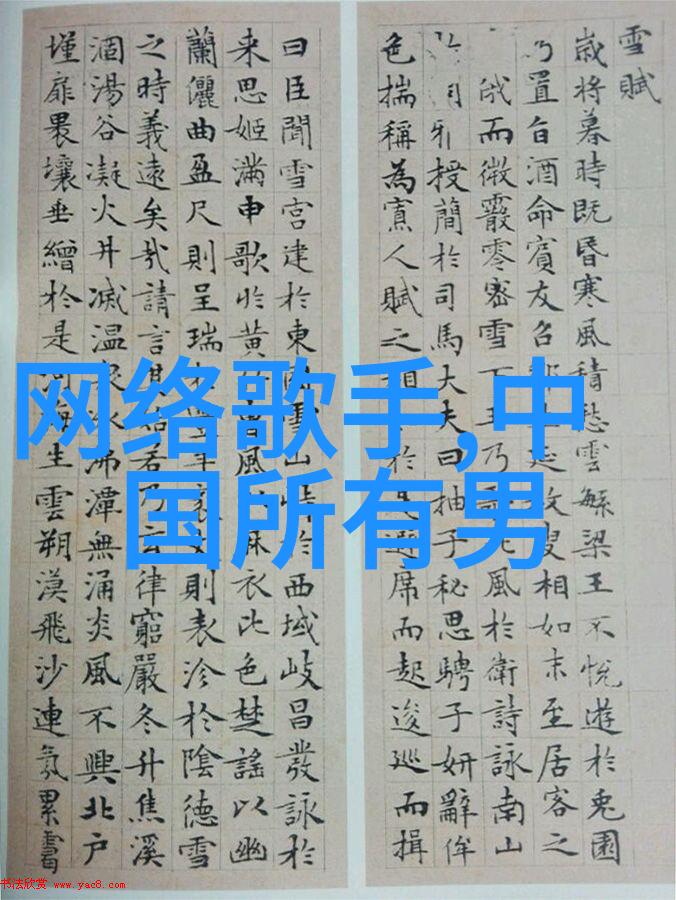 雪賦
歲将暮時既昏寒風積愁雲繁梁王不悅遊於兎園
乃置旨酒命賓友召鄒生延枚叟相如末至居客之
俄而微霰零密雪下王乃風於衛詩詠南山
雅授簡於司馬大夫曰抽子秘思騁子妍辭侔
色揣稱為寡人賦之相於是避席而起逡巡而揖
曰臣聞雪宮建於東國雪山峙於西域岐昌發詠於
来思姬滿申歌於黄竹曹風麻衣比色楚謠以幽
蘭儷曲盈尺則呈瑞於豐年袤丈則表沴於陰德雪
之時義遠矣哉請言其始若乃玄律窮嚴冬升焦溪
涸湯谷凝火井滅温泉冰沸潭無涌炎風不興北户
墐扉裸壤垂繒於是河海生雲朔漠飛沙連氛累靄
网络歌手,中
国所有男
书法欣赏 www.yac8.com